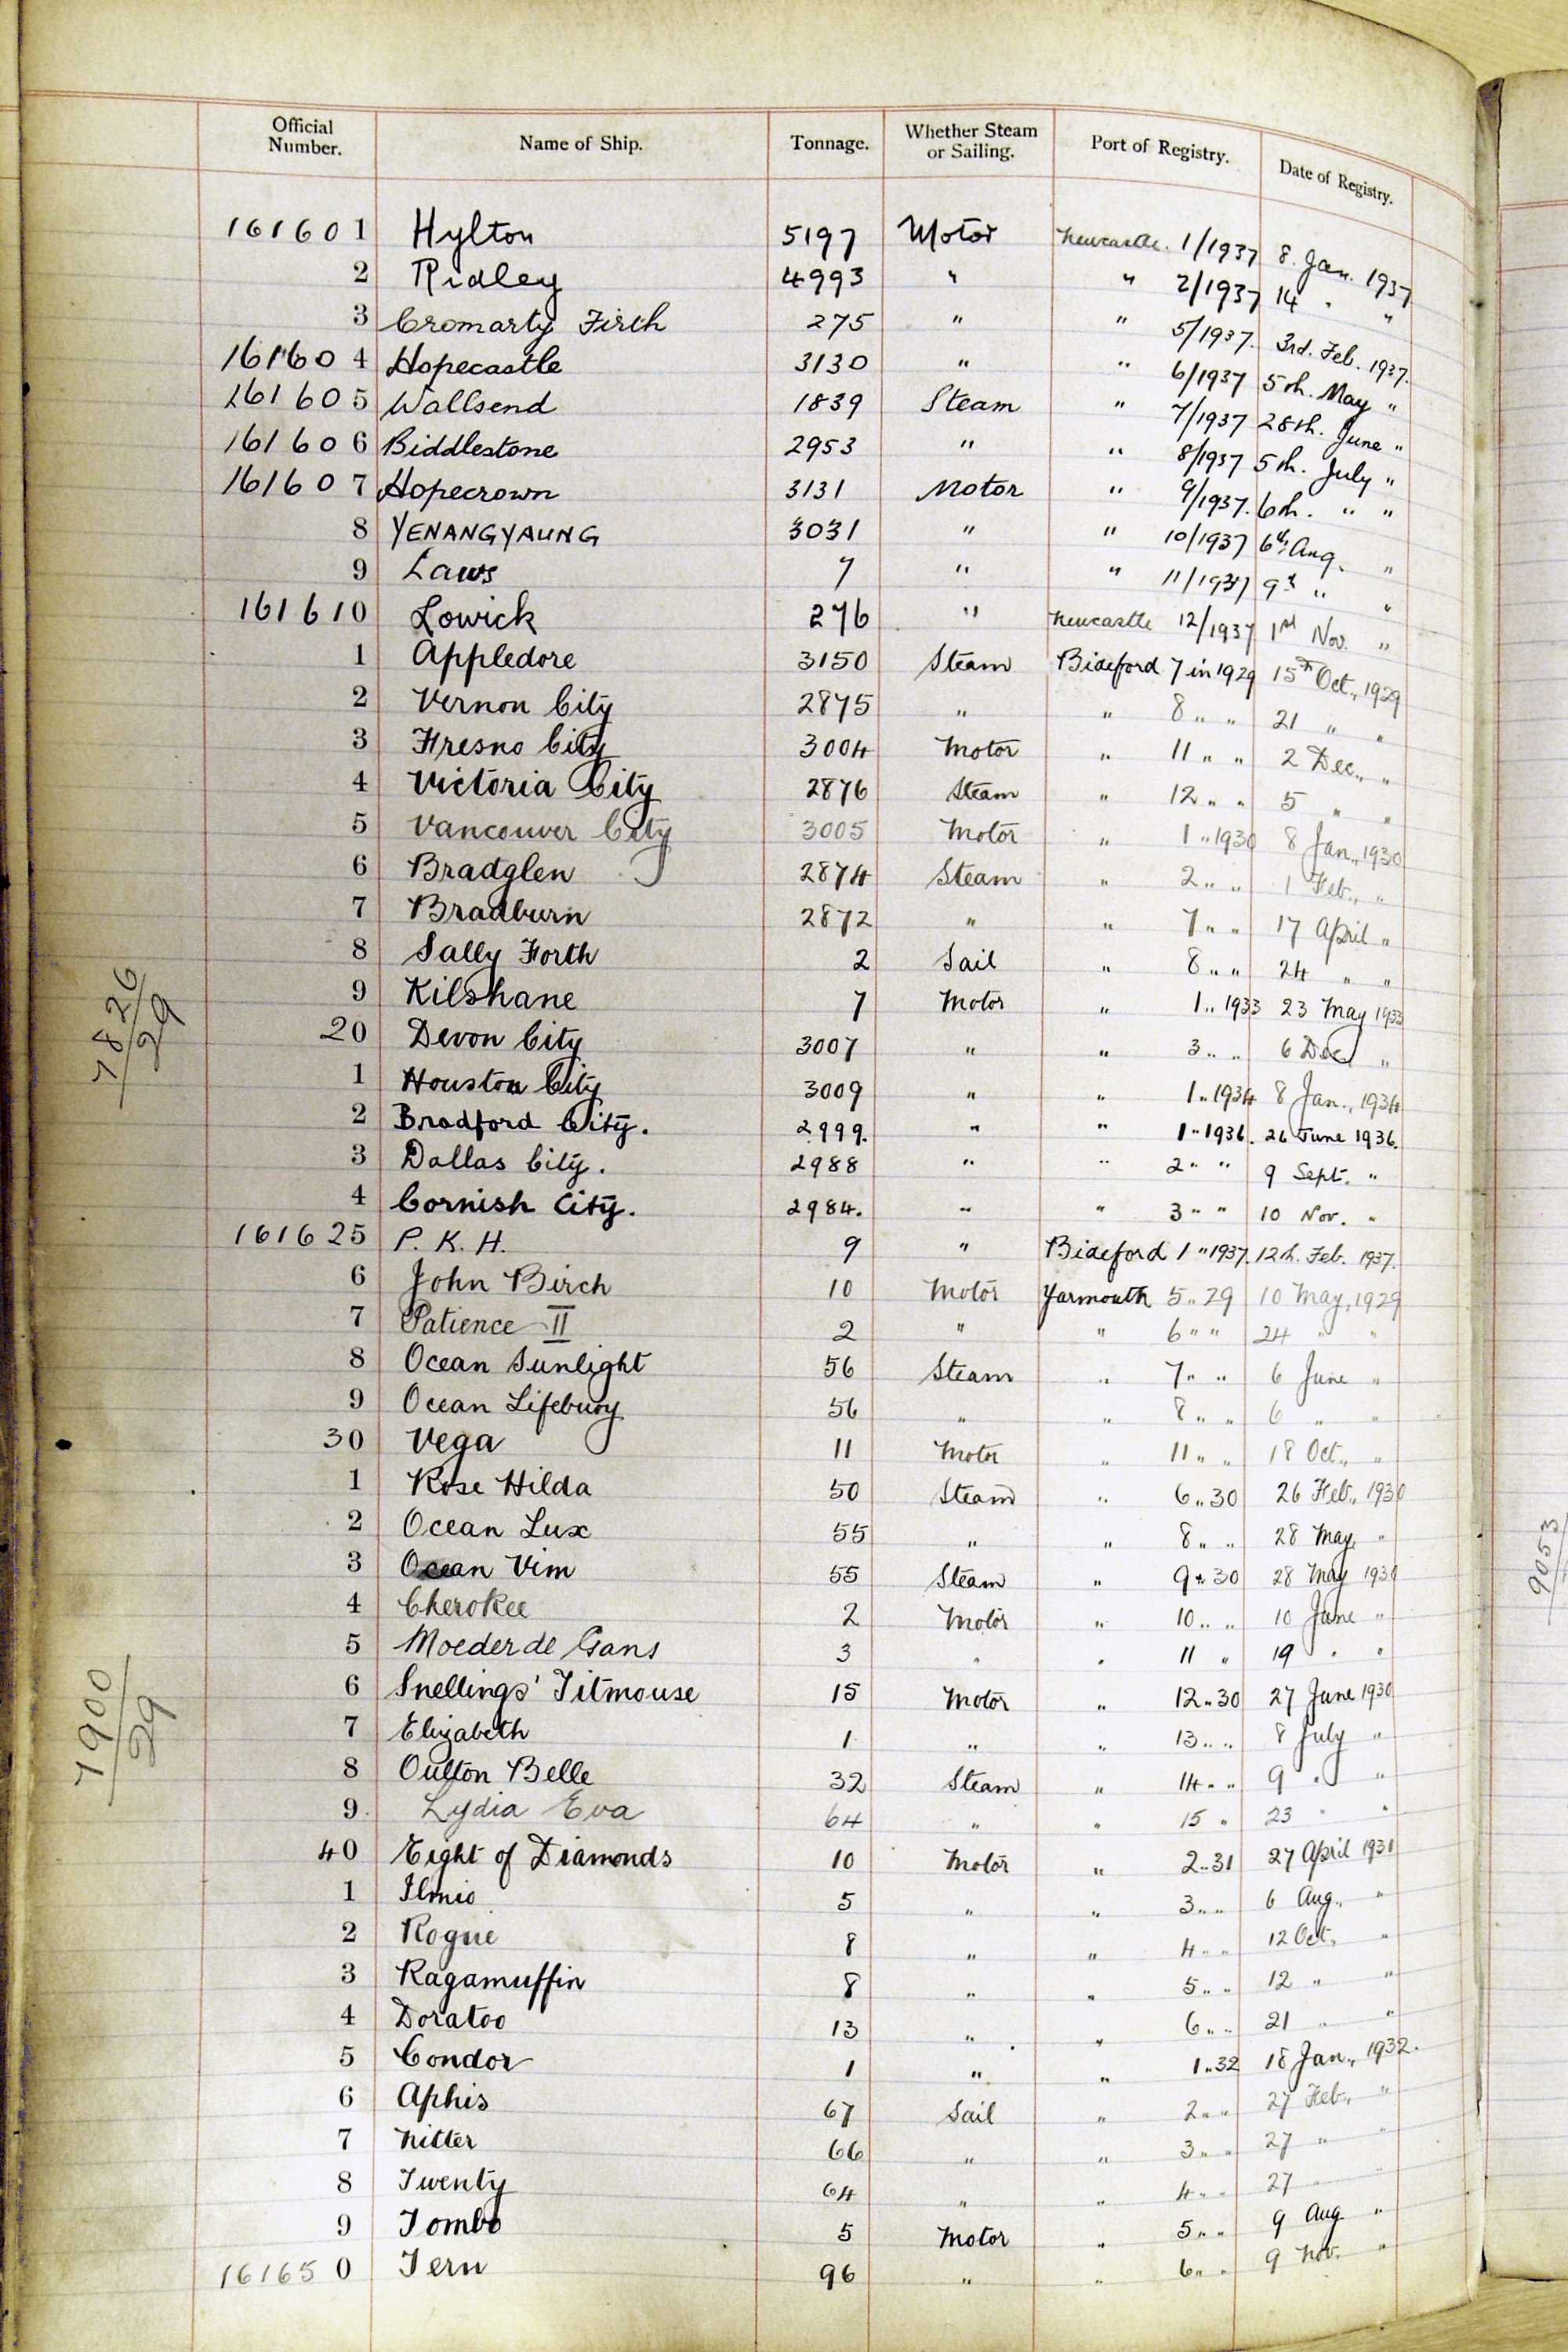 Official Number. Name of Ship. Tonnage. Whether Steam or Sailing. Port of Registry. Date of Registry.
161601 Hylton 5197 Motor Newcastle. 1/1937 8. Jan. 1937
2 Ridley 4993 " " 2/1937 14 " "
3 Cromarty Firth 275 " " 5/1937. 3rd. Feb. 1937.
161604 Hopecastle 3130 " " 6/1937 5th. May "
161605 Wallsend 1839 Steam " 7/1937 28th. June "
161606 Biddlestone 2953 " " 8/1937 5th. July "
161607 Hopecrown 3131 Motor " 9/1937. 6th. " "
8 YENANGYAUNG 3031 " " 10/1937 6th Aug. "
9 Laws 7 " " 11/1937 9th " "
161610 Lowick 276 " Newcastle 12/1937 1st Nov. "
1 Appledore 3150 Steam Bideford 7 in 1929 15th Oct., 1929
2 Vernon City 2875 " " 8 " " 21 " "
3 Fresno City 3004 Motor " 11 " " 2 Dec., "
4 Victoria City 2876 Steam " 12 " " 5 " "
5 Vancouver City 3005 Motor " 1 " 1930 8 Jan., 1930
6 Bradglen 2874 Steam " 2 " " 1 Feb., "
7 Bradburn 2872 " " 7 " " 17 April "
8 Sally Forth 2 Sail " 8 " " 24 " "
9 Kilshane 7 Motor " 1 " 1933 23 May 1933
20 Devon City 3007 " " 3 " " 6 Dec. "
1 Houston City 3009 " " 1 " 1934 8 Jan., 1934
2 Bradford City. 2999. " " 1 " 1936. 26 June 1936.
3 Dallas City. 2988 " " 2 " " 9 Sept. "
4 Cornish City. 2984. " " 3 " " 10 Nov. "
161625 P. K. H. 9 " Bideford 1 " 1937. 12th. Feb. 1937.
6 John Birch 10 Motor Yarmouth 5 " 29 10 May, 1929
7 Patience II 2 " " 6 " " 24 " "
8 Ocean Sunlight 56 Steam " 7 " " 6 June "
9 Ocean Lifebuoy 56 " " 8 " " 6 " "
30 Vega 11 Motor " 11 " " 18 Oct., "
1 Rose Hilda 50 Steam " 6 " 30 26 Feb., 1930
2 Ocean Lux 55 " " 8 " " 28 May "
3 Ocean Vim 55 Steam " 9 " 30 28 May 1930
4 Cherokee 2 Motor " 10 " " 10 June "
5 Moeder de Gans 3 " " 11 " 19 " "
6 Snellings' Titmouse 15 Motor " 12 " 30 27 June 1930
7 Elizabeth 1 " " 13 " " 8 July "
8 Oulton Belle 32 Steam " 14 " " 9 " "
9 Lydia Eva 64 " " 15 " 23 " "
40 Eight of Diamonds 10 Motor " 2 " 31 27 April 1931
1 5 " " 3 " " 6 Aug., "
2 Rogue 8 " " 4 " " 12 Oct., "
3 Ragamuffin 8 " " 5 " " 12 " "
4 Doratoo 13 " " 6 " " 21 " "
5 Condor 1 " " 1 " 32 18 Jan., 1932.
6 Aphis 67 Sail " 2 " " 27 Feb., "
7 Nitter 66 " " 3 " " 27 " "
8 Twenty 64 " " 4 " " 27 " "
9 Tombo 5 Motor " 5 " " 9 Aug "
161650 Tern 96 " " 6 " " 9 Nov. "
7826/29
7900/29
9053